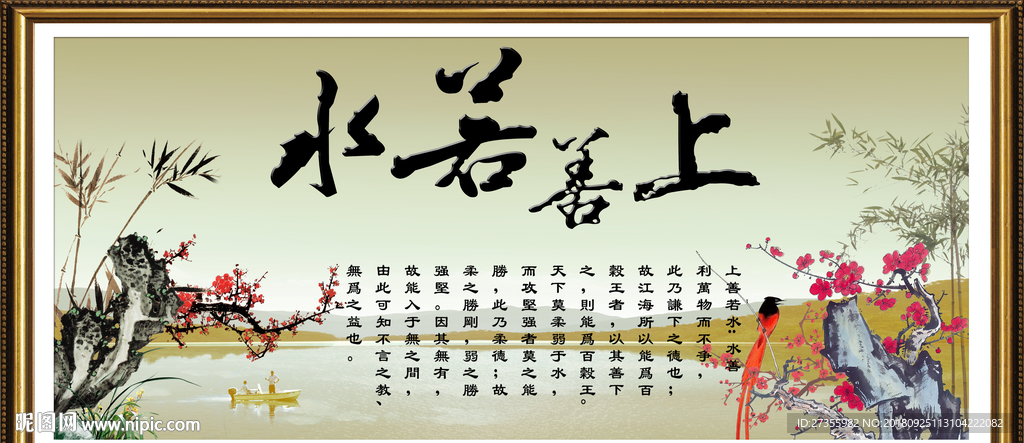 上善若水
上善若水：水善
利萬物而不爭，
此乃謙下之德也；
故江海所以能爲百
穀王者，以其善下
之，則能爲百穀王。
天下莫柔弱于水，
而攻堅强者莫之能
勝，此乃柔德；故
柔之勝剛，弱之勝
强堅。因其無有，
故能入于無之間，
由此可知不言之教、
無爲之益也。
昵图网 www.nipic.com
ID:27355982 NO:20180925113104222082